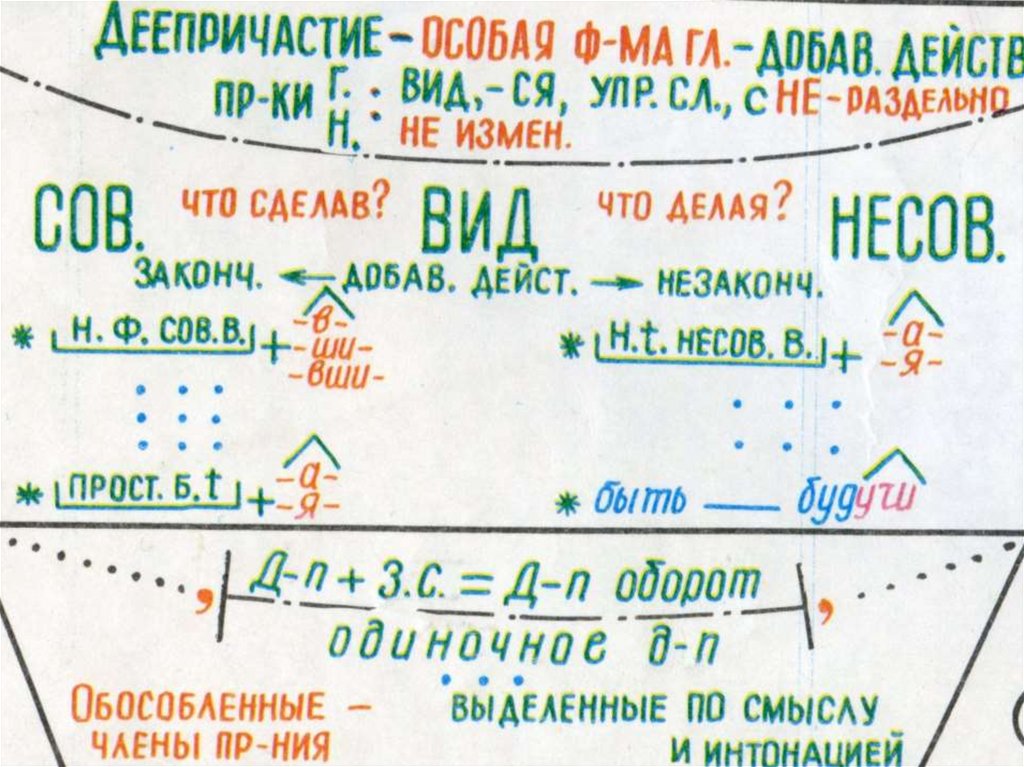 ДЕЕПРИЧАСТИЕ – ОСОБАЯ Ф-МА ГЛ. – ДОБАВ. ДЕЙСТВ
ПР-КИ Г. : ВИД, -СЯ, УПР. СЛ., С НЕ – РАЗДЕЛЬНО
Н. : НЕ ИЗМЕН.
СОВ. ЧТО СДЕЛАВ? ВИД ЧТО ДЕЛАЯ? НЕСОВ.
ЗАКОНЧ. ← ДОБАВ. ДЕЙСТ. → НЕЗАКОНЧ.
* Н. Ф. СОВ. В. + -в- * Н.t. НЕСОВ. В. + -а-
-ши- -я-
-вши-
* ПРОСТ. Б. t + -а- * быть — будучи
-я-
, Д-п + З.С. = Д-п оборот ,
одиночное д-п
ОБОСОБЛЕННЫЕ – ВЫДЕЛЕННЫЕ ПО СМЫСЛУ
ЧЛЕНЫ ПР-НИЯ И ИНТОНАЦИЕЙ